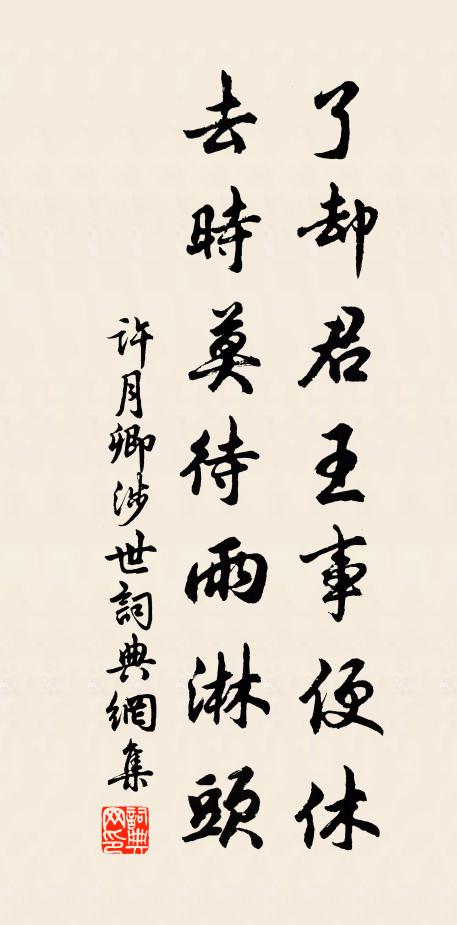 了却君王事便休
去時莫待雨淋頭
許月卿涉世詞典網集
詞典
网印